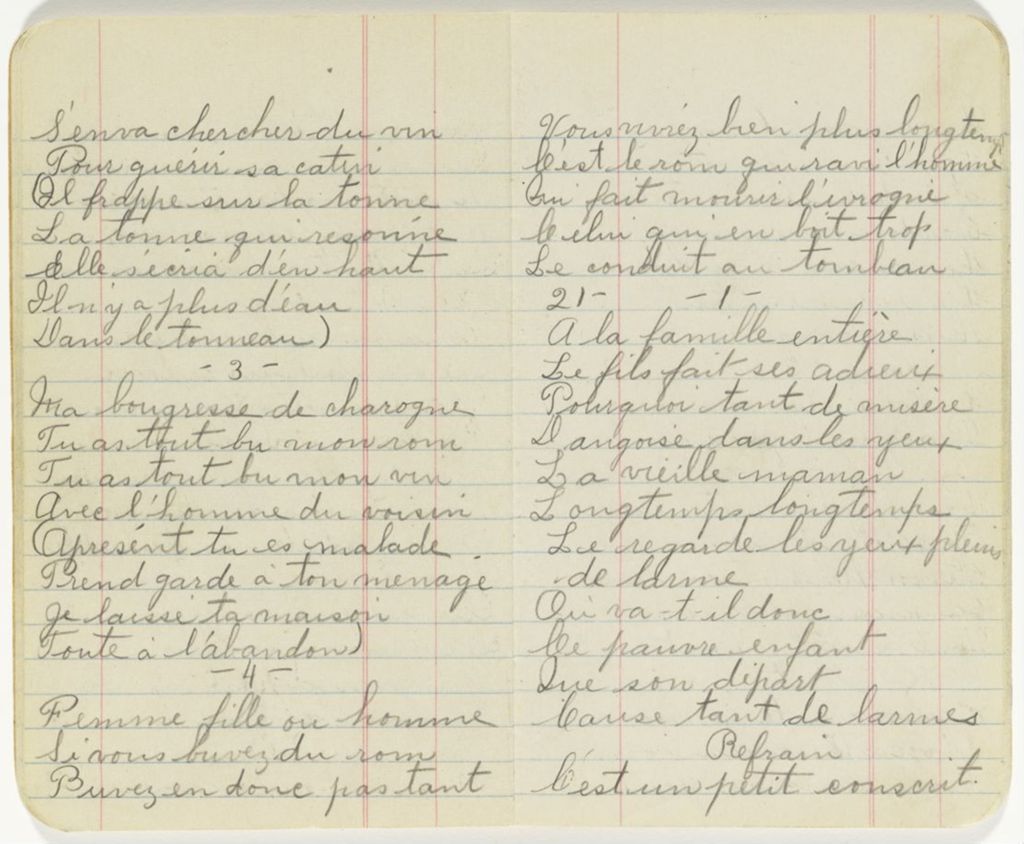 S'en va chercher du vin
Pour guérir sa catin
(Il frappe sur la tonne
La tonne qui resonne
Elle s'écria d'en haut
Il n'y a plus d'eau
Dans le tonneau)
- 3 -
Ma bougresse de charogne
Tu as tout bu mon rom
Tu as tout bu mon vin
Avec l'homme du voisin
(Apresént tu es malade
Prend garde à ton menage
Je laisse ta maison
Toute à l'abandon)
- 4 -
Femme fille ou homme
Si vous buvez du rom
Buvez en donc pas tant
Vous vivréz bien plus longtemps
C'est le rom qui ravi l'homme
Qui fait mourir l'ivrogne
Celui qui en boit trop
Le conduit au tombeau
21- - 1 -
A la famille entière
Le fils fait ses adieux
Pourquoi tant de misère
D'angoise dans les yeux
La vieille maman
Longtemps longtemps
Le regarde les yeux pleins
de larme
Où va-t-il donc
Ce pauvre enfant
Que son départ
Cause tant de larmes
Refrain
C'est un petit conscrit.